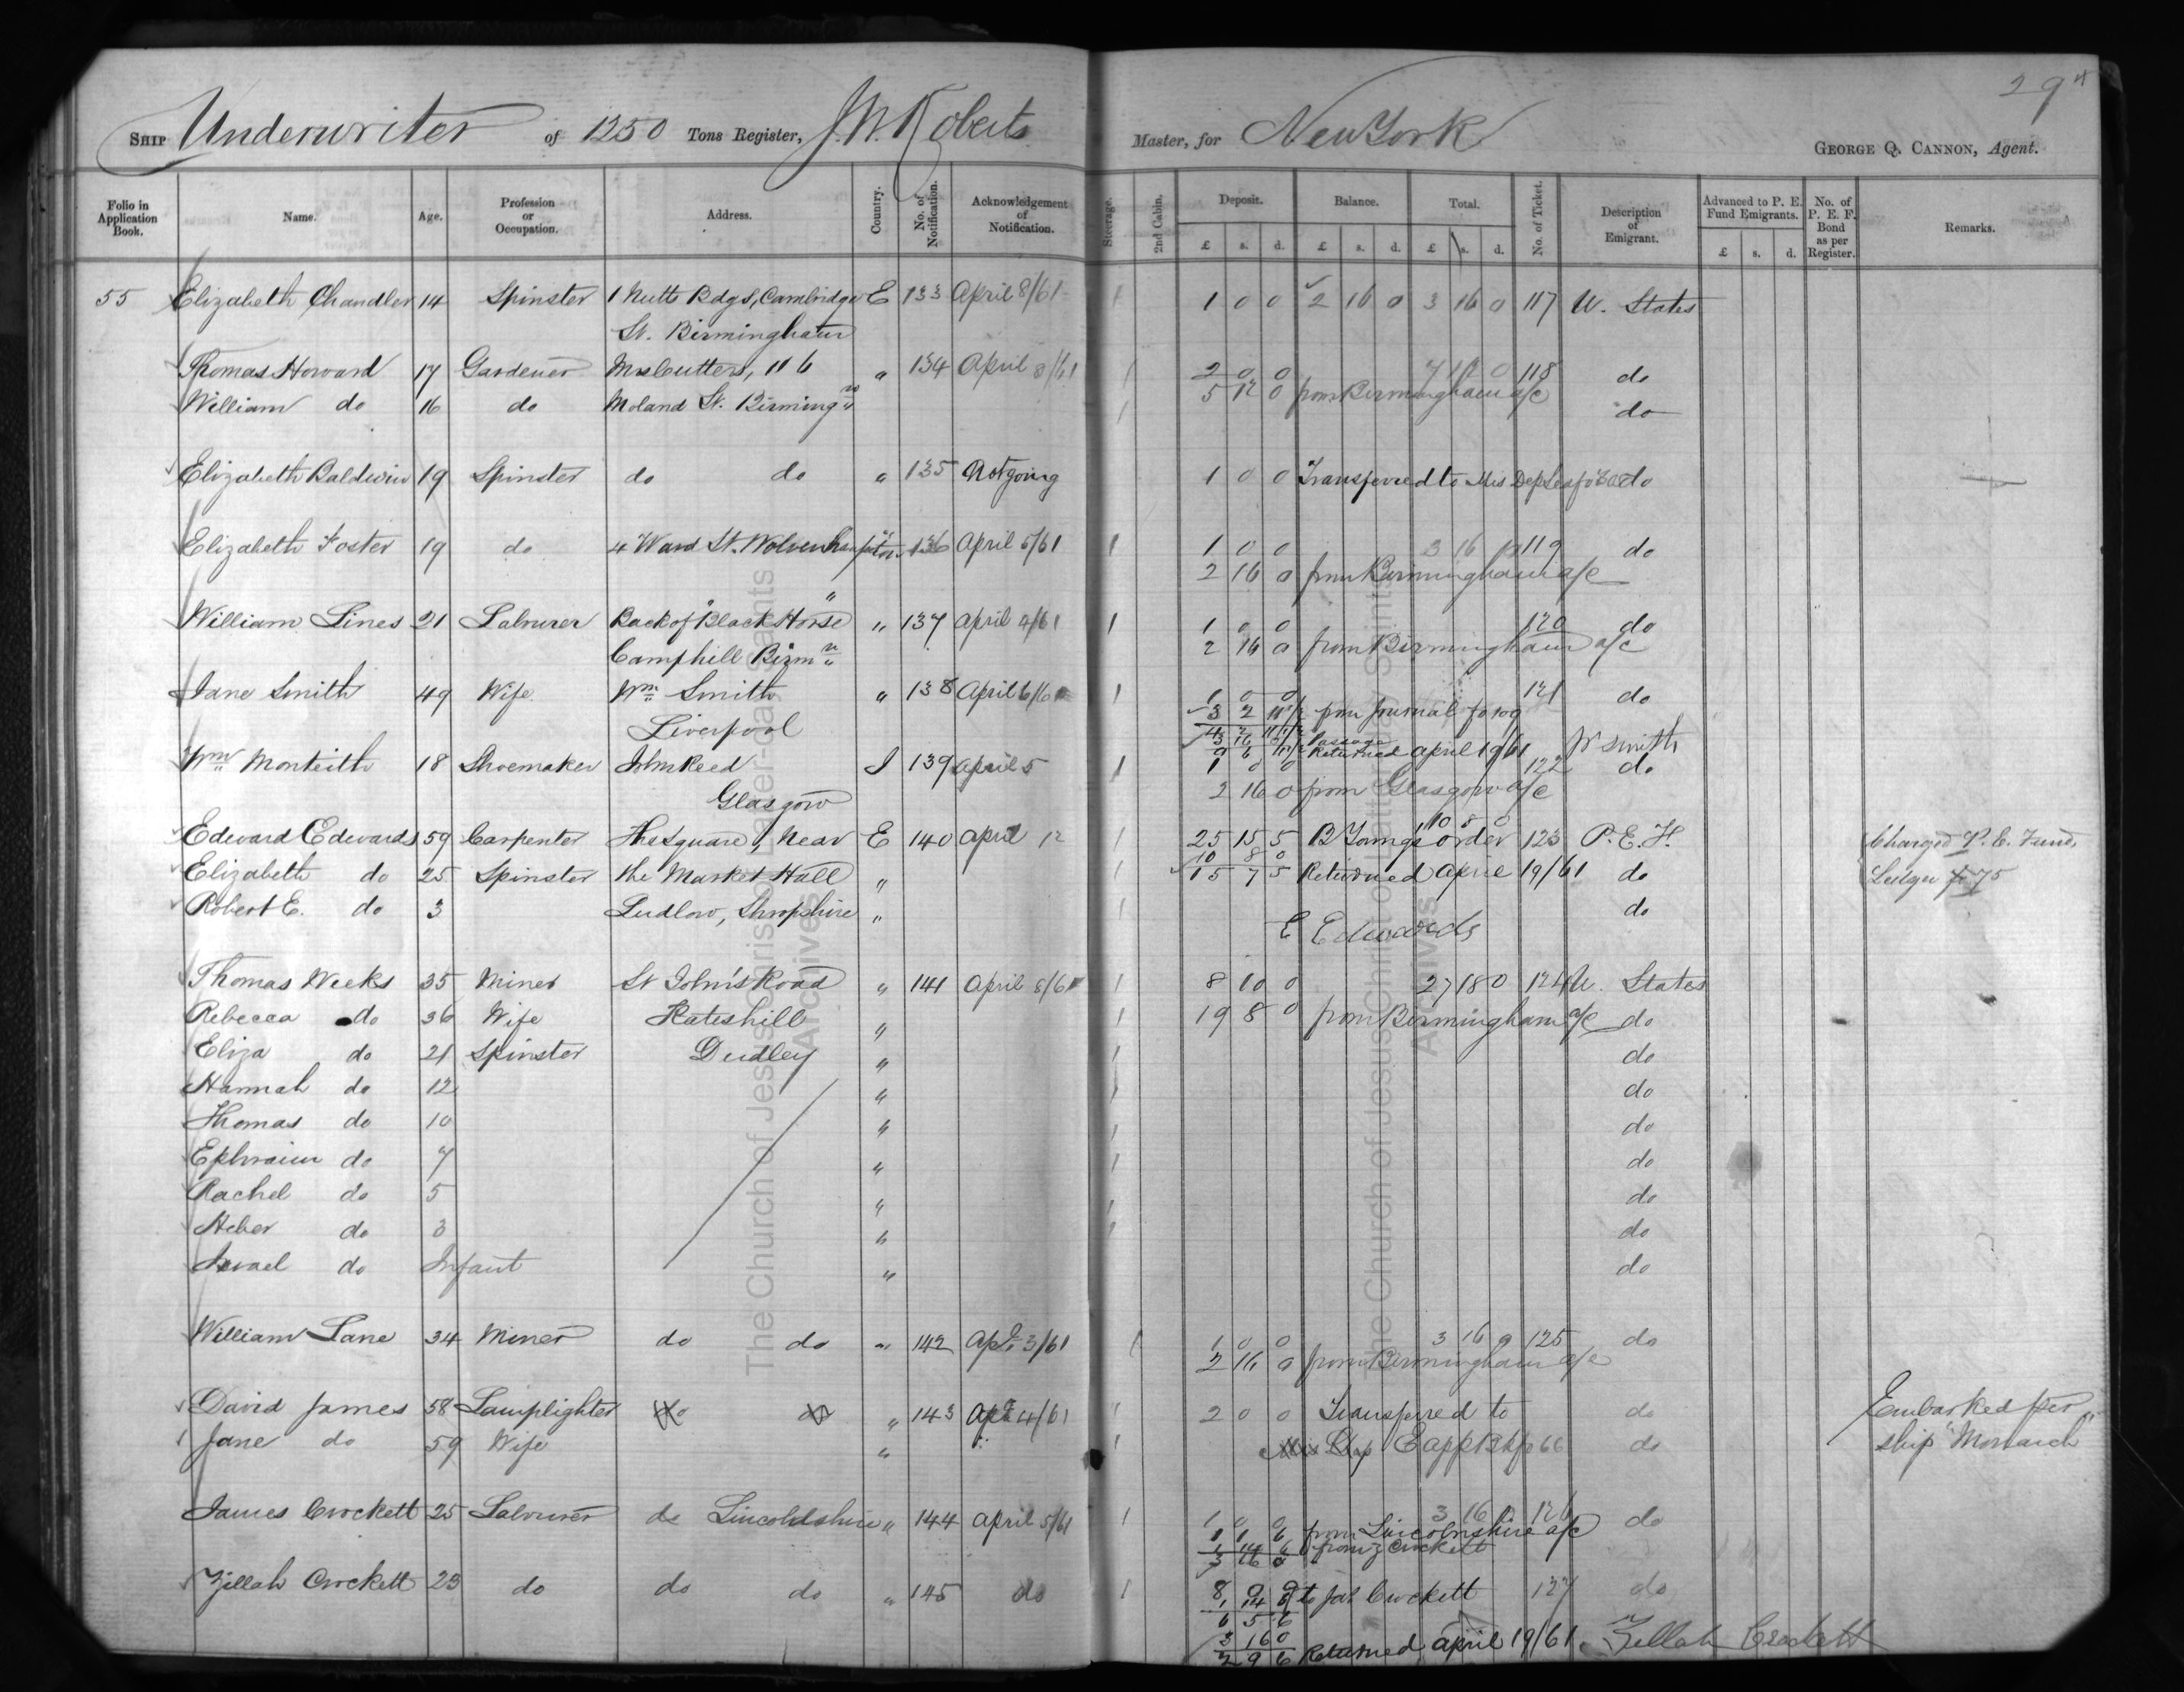 294
Ship Underwriter of 1250 Tons Register, J.W. Roberts Master, for New York George Q. Cannon, Agent.
Folio in Application Book. Name. Age. Profession or Occupation. Address. Country. No. of Notification. Acknowledgement of Notification. Steerage. 2nd Cabin. Deposit. Balance. Total. No. of Ticket. Description of Emigrant. Advanced to P. E. Fund Emigrants. No. of P. E. F. Bond as per Register. Remarks.
£ s. d. £ s. d. £ s. d. £ s. d.
55 Elizabeth Chandler 14 Spinster 1 Nutts Bdgs, Cambridge E 133 April 8/61 1 1 0 0 2 16 0 3 16 0 117 U. States
St. Birmingham
Thomas Howard 17 Gardener Mrs Cutters, 116 " 134 April 8/61 1 2 0 0 7 12 0 118 do
William do 16 do Moland St. Birmingm 1 5 12 0 from Birmingham a/c do
Elizabeth Baldwin 19 Spinster do do " 135 Not going 1 0 0 Transferred to Mis Dep do
Elizabeth Foster 19 do 4 Ward St. Wolverhampton " 136 April 5/61 1 1 0 0 3 16 0 119 do
2 16 0 from Birmingham a/c
William Lines 21 Labourer Back of "Black Horse" " 137 April 4/61 1 1 0 0 120 do
Camphill Birmn 2 16 0 from Birmingham a/c
Jane Smith 49 Wife Wm Smith " 138 April 6/61 1 1 0 0 121 do
Liverpool 3 2 11 1/2 from Journal fo 109
4 2 11 1/2
3 16 0 Passage
0 6 11 1/2 Returned April 19/61 W Smith
Wm Monteith 18 Shoemaker John Reed S 139 April 5 1 1 0 0 122 do
Glasgow 2 16 0 from Glasgow a/c
Edward Edwards 59 Carpenter The Square, Near E 140 April 12 1 25 15 5 B Youngs order 10 8 0 123 P. E. F. Charged P. E. Fund,
10 8 0
Elizabeth do 25 Spinster the Market Hall " 1 15 7 5 Returned April 19/61 do Ledger fo 75
Robert E. do 3 Ludlow, Shropshire " 1 do
E Edwards
Thomas Weeks 35 Miner St John's Road " 141 April 8/61 1 8 10 0 27 18 0 124 U. States
Rebecca do 36 Wife Kateshill " 1 19 8 0 from Birmingham a/c do
Eliza do 21 Spinster Dudley " 1 do
Hannah do 12 " 1 do
Thomas do 10 " 1 do
Ephraim do 7 " 1 do
Rachel do 5 " 1 do
Heber do 3 " 1 do
Israel do Infant " do
William Lane 34 Miner do do " 142 Apl 3/61 1 1 0 0 3 16 0 125 do
2 16 0 from Birmingham a/c
David James 58 Lamplighter do do " 143 Apl 4/61 1 2 0 0 Transferred to do Embarked per
Jane do 59 Wife " " 1 E app Bk fo 66 do ship "Monarch"
James Crockett 25 Labourer do Lincolnshire " 144 April 5/61 1 1 0 0 3 16 0 126 do
1 1 6 from Lincolnshire a/c
1 14 6 from Z Crockett
3 16 0
Zillah Crockett 23 do do do " 145 do 1 8 0 0 127 do
1 14 6 to Jas. Crockett
6 5 6
3 16 0
2 9 6 Returned April 19/61 Zillah Crockett
The Church of Jesus Christ of Latter-day Saints
Archives
The Church of Jesus Christ of Latter-day Saints
Archives